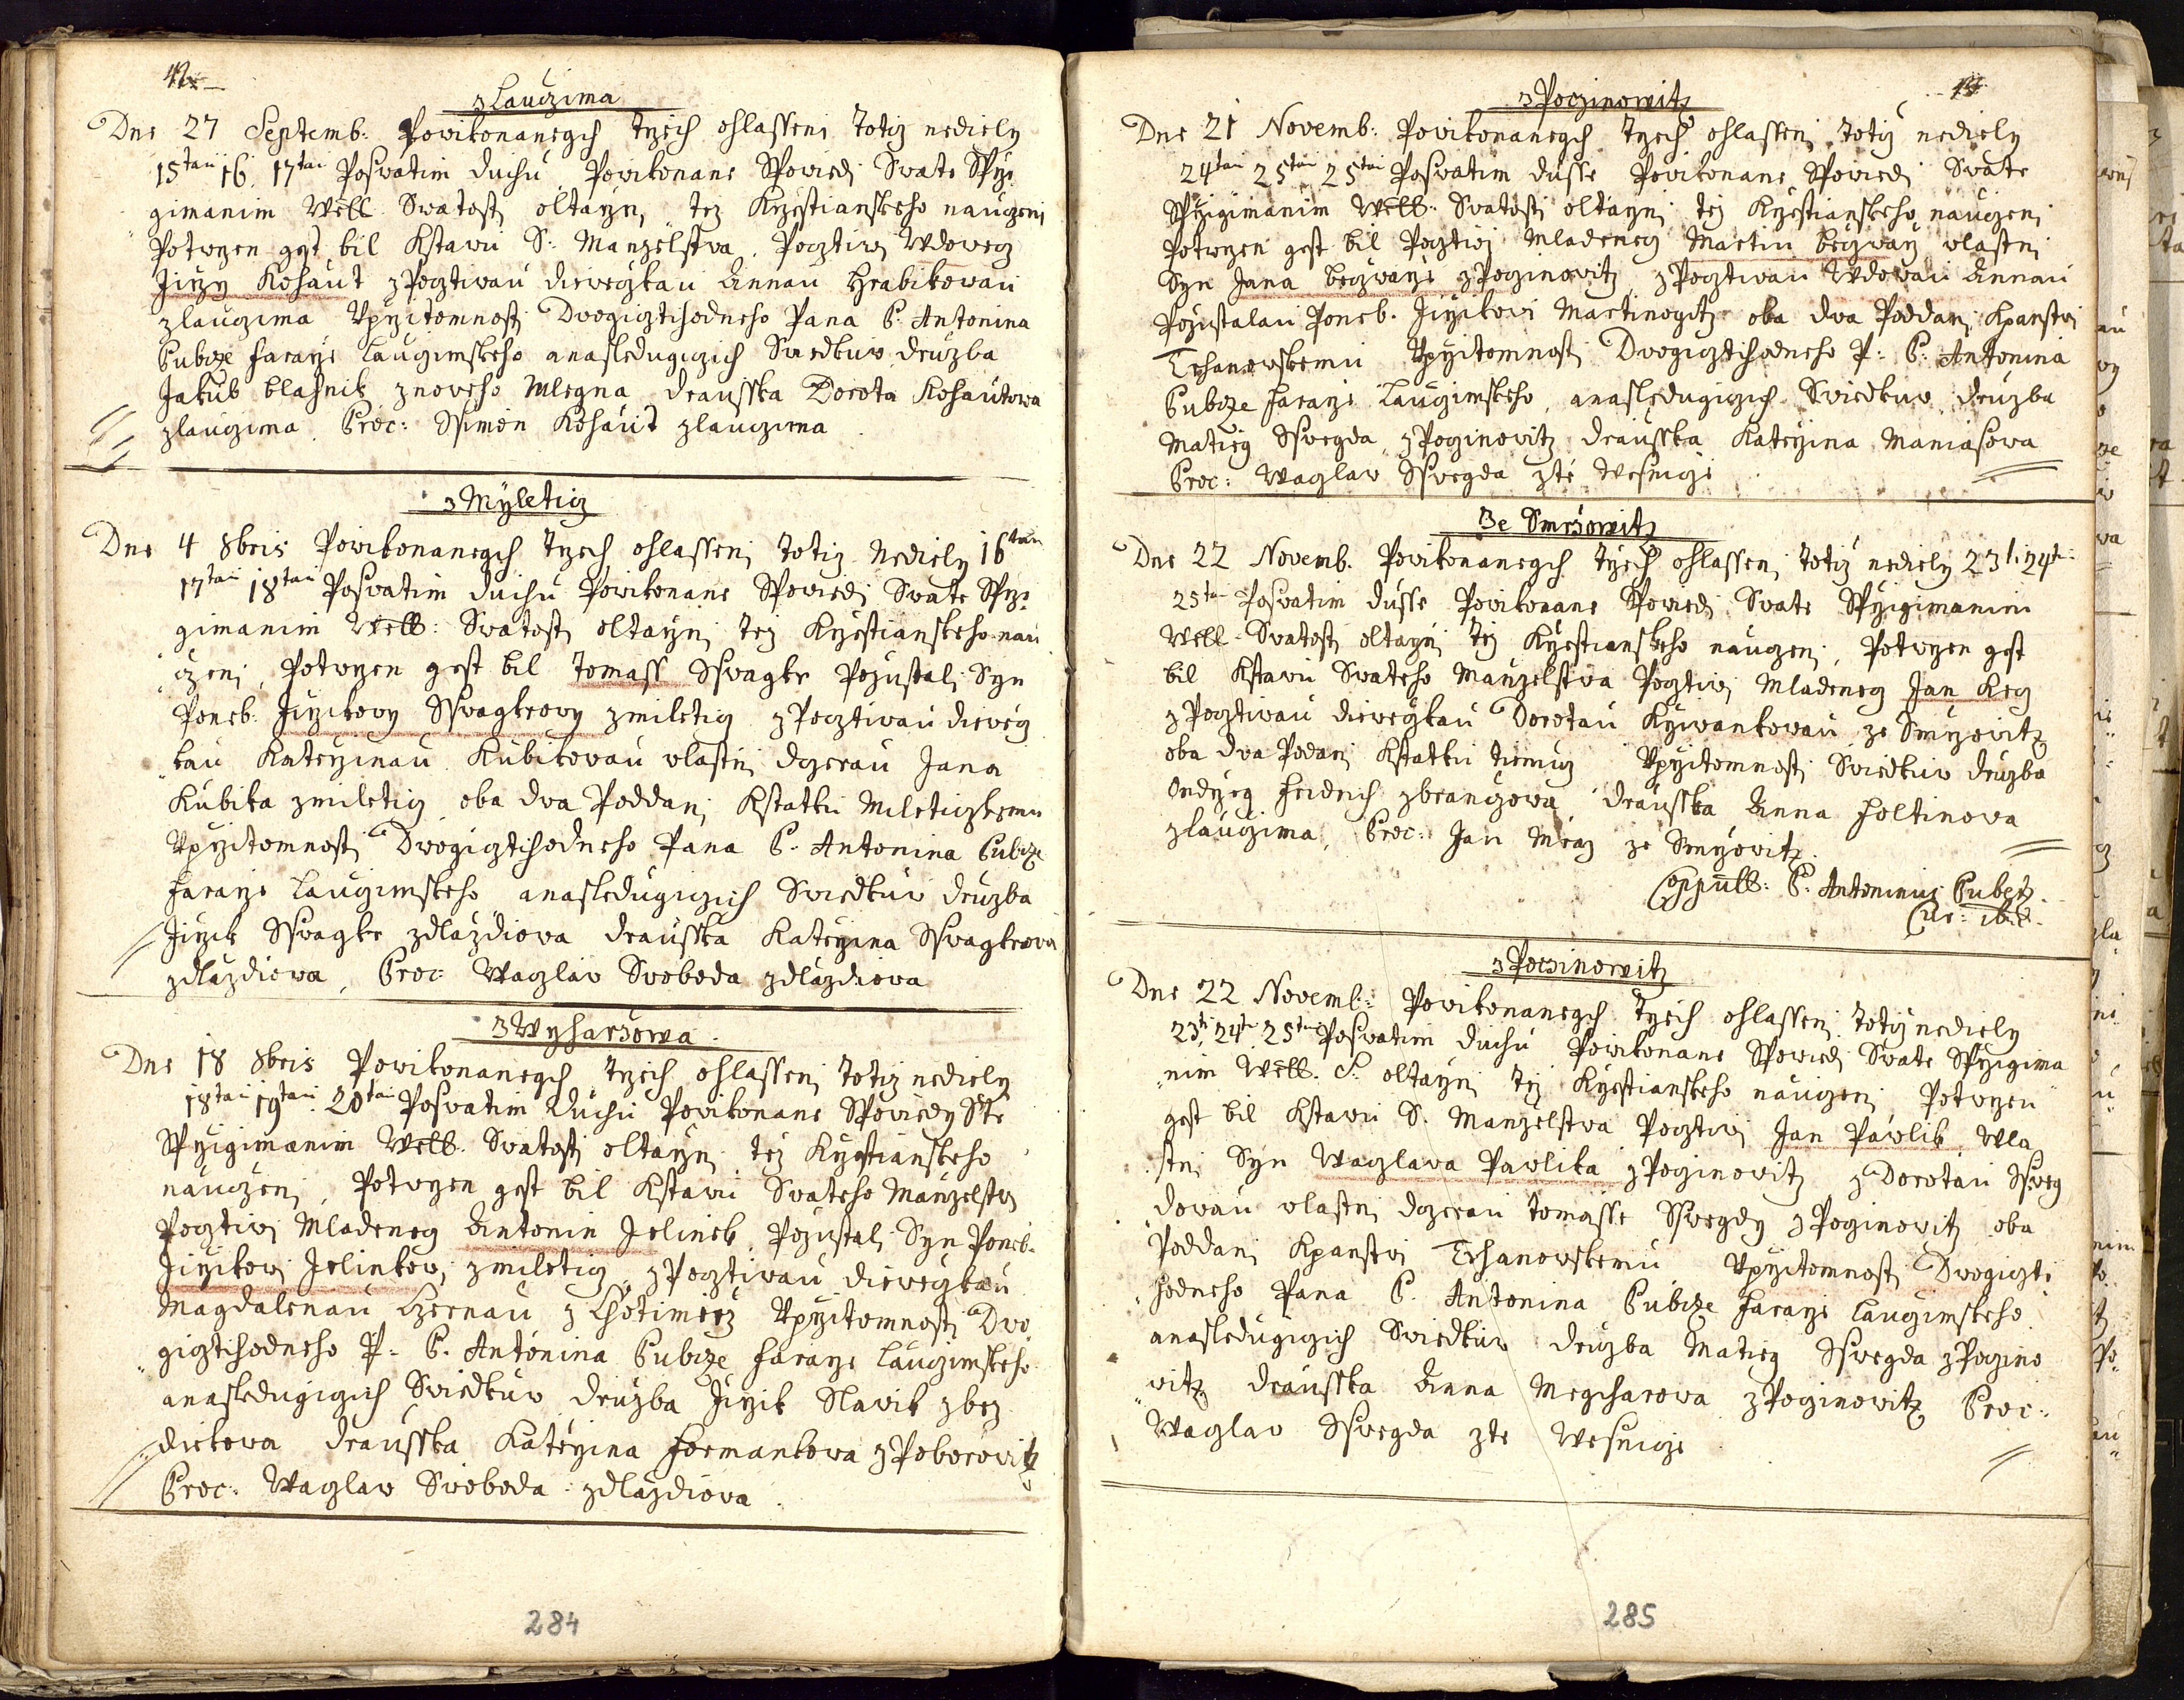 z Lauczima
Dne 27 Septemb: Powikonanegch trzech ohlasseni totiz nediely
15tau 16. 17tau Poswatim duchu Powikonane Spowiedi Swate Sprzi
gimanim Well. Swatosti oltarzni, tez Krzestianskeho nauczeni
Potwrzen gest bil Kstawu S: Manzelstwa. Pocztiwi Wdowecz
Jirzy Kohaut z Pocztiwau diewczkau Annau Hrabikowau
z lauczima Vprzitomnosti Dwogicztihodneho Pana P. Antonina
Pubcze Fararze Lauczimskeho anasledugiczich Swiedkuw druzba
Jakub blahnik z noweho Mlegna drausska Dorota Kohautowa
z lauczima. Proc: Ssimon Kohaut z lauczima
z Myleticz
Dne 4 8bris Powikonanegch trzech ohlasseni totiz Nediely 16tau
17tau 18tau Poswatim duchu Powikonane Spowiedi Swate Sprzi
gimanim Well: Swatosti oltarzni tez Krzestianskeho nau
czeni, Potwrzen gest bil Tomass Sswagkr Pozustali Syn
Poneb: Jirzikowy Sswagkrowy z mileticz z Pocztiwau diewcz
kau Katerzinau Kubikowau wlastni dczerau Jana
Kubika z mileticz oba dwa Poddani Kstatku Mileticzkemu
Vprzitomnosti Dwogicztihodneho Pana P. Antonina Pubcze
Fararze Lauczimskeho anasledugiczich Swiedkuw druzba
Jirzik Sswagkr z dlazdiowa drausska Katerzina Sswagkrowa
z dlazdiowa, Proc: Waczlaw Swoboda z dlazdiowa
z Wyharzowa
Dne 18 8bris Powikonanegch trzech ohlasseni totiz nediely
18tau 19tau 20tau Poswatim duchu Powikonane Spowiedy Ste
Sprzigimanim Well. Swatosti oltarzni tez Krzestianskeho
nauczeni, Potwrzen gest bil Kstawu Swateho Manzelstwi
Pocztiwi Mladenecz Antonin Jelinek Pozustali Syn Poneb.
Jirzikowi Jelinkowi z mileticz, z Pocztiwau diewczkau
Magdalenau Czernau z Chotimierz Vprzitomnosti Dwo
gicztihodneho P: P. Antonina Pubcze Fararze Lauczimskeho
anasledugiczich Swiedkuw druzba Jirzik Slawik z bez
diekowa drausska Katerzina Formankowa z Poborowitz
Proc: Waczlaw Swoboda z dlazdiowa.
284
z Poczinowitz
Dne 21 Novemb: Powikonanegch trzech ohlasseni totiz nediely
24tau 25tau 25tau Poswatim dusse Powikonane Spowiedi Swate
Sprzigimanim Well: Swatosti oltarzni tez Krzestianskeho nauczeni
Potwrzen gest bil Pocztiwi Mladenecz Martin beczwarz wlastni
Syn Jana beczwarze z Poczinowitz, z Pocztiwau Wdowau Annau
Pozustalau Poneb. Jirzikowi Martinogitz oba dwa Poddani Kpanstwi
Trhanowskemu Vprzitomnosti Dwogicztihodneho P: P: Antonina
Pubcze Fararze Lauczimskeho, anasledugiczich Swiedkuw druzba
Matieg Sswegda z Poczinowitz drausska Katerzina Maniasowa
Proc: Waczlaw Sswegda z té Wesnicze
Ze Smrzowitz
Dne 22 Novemb. Powikonanegch trzech ohlasseni totiz nediely 23ti 24ti
25tau Poswatim dusse Powikonane Spowiedi Swate Sprzigimanim
Well. Swatosti oltarzni tez Krzestianskeho nauczeni, Potwrzen gest
bil Kstawu Swateho Manzelstwa Pocztiwi Mladenecz Jan Reg
z Pocztiwau diewczkau Dorotau Krziwankowau ze Smrzowitz
oba dwa Podani Kstatku tiemuz Vprzitomnosti Swiedkuw druzba
Ondrzeg Fridrich z branczowa drausska Anna Holtinowa
z lauczima, Proc: Jan Mraz ze Smrzowitz.
Coppull: P. Antoninus Pubetz
Cur: ibid.
z Poczinowitz
Dne 22 Novemb: Powikonanegch trzech ohlasseni totiz nediely
23ti 24ti 25tau Poswatim duchu Powikonane Spowiedi Swate Sprzigima
nim Well. S. oltarzni tez Krzestianskeho nauczeni, Potwrzen
gest bil Kstawu S. Manzelstwa Pocztiwi Jan Pawlik Wla
stni Syn Waczlawa Pawlika z Poczinowitz z Dorotau Ssweg
dowau wlastni dczerau Tomasse Sswegdy z Poczinowitz oba
Poddani Kpanstwi Trhanowskemu Vprzitomnosti Dwogiczti
hodneho Pana P. Antonina Pubcze Fararze Lauczimskeho
anasledugiczich Swiedkuw druzba Matieg Sswegda z Poczino
witz drausska Anna Megcharowa z Poczinowitz Proc:
Waczlaw Sswegda z te Wesnicze
285